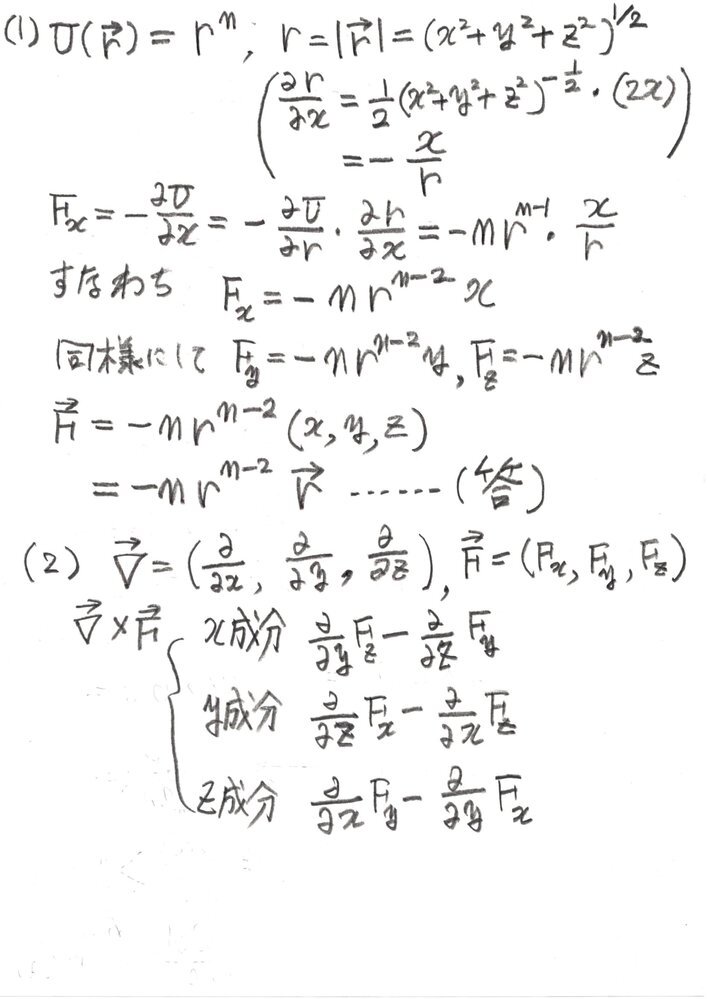 (1) U(r⃗) = rⁿ, r = |r⃗| = (x²+y²+z²)^{1/2}
(∂r/∂x = 1/2 (x²+y²+z²)^{-1/2}・(2x)
= - x/r)
F_x = -∂U/∂x = - ∂U/∂r・∂r/∂x = -n r^{n-1}・x/r
すなわち F_x = -n r^{n-2} x
同様にして F_y = -n r^{n-2} y, F_z = -n r^{n-2} z
F⃗ = -n r^{n-2} (x, y, z)
= -n r^{n-2} r⃗ ……(答)
(2) ∇⃗ = (∂/∂x, ∂/∂y, ∂/∂z), F⃗ = (F_x, F_y, F_z)
∇⃗×F⃗ { x成分 ∂/∂y F_z - ∂/∂z F_y
y成分 ∂/∂z F_x - ∂/∂x F_z
z成分 ∂/∂x F_y - ∂/∂y F_x